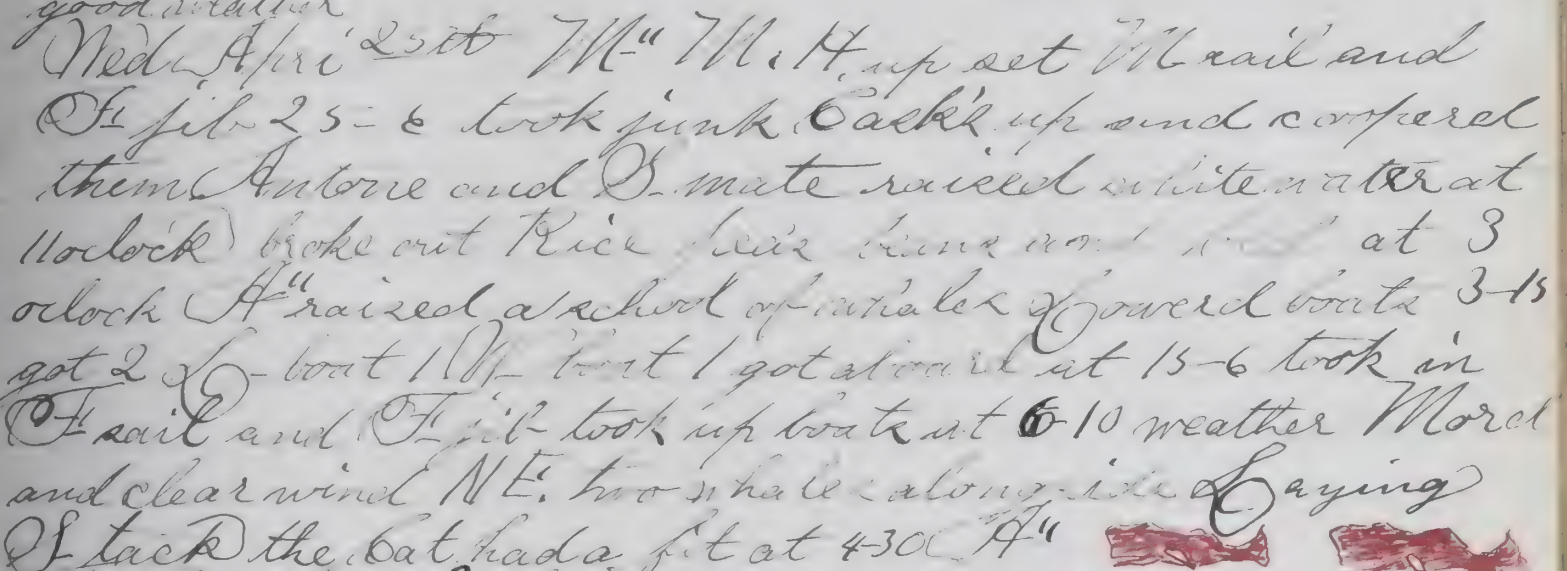 good weather
Wed April 25th M" M. H. up set M sail and
F jib 25-6 took junk Cask's up and coopered
them Antone and S- mate raised white water at
11 oclock broke out Rice at 3
oclock A" raised a school of whales Lowerd boats 3-15
got 2 L- boat 1 W- boat 1 got aboard at 15-6 took in
F sail and F jib took up boats at 6-10 weather
and clear wind NE. two whales alongside Laying
S tack the Cat had a fit at 4-30 A"